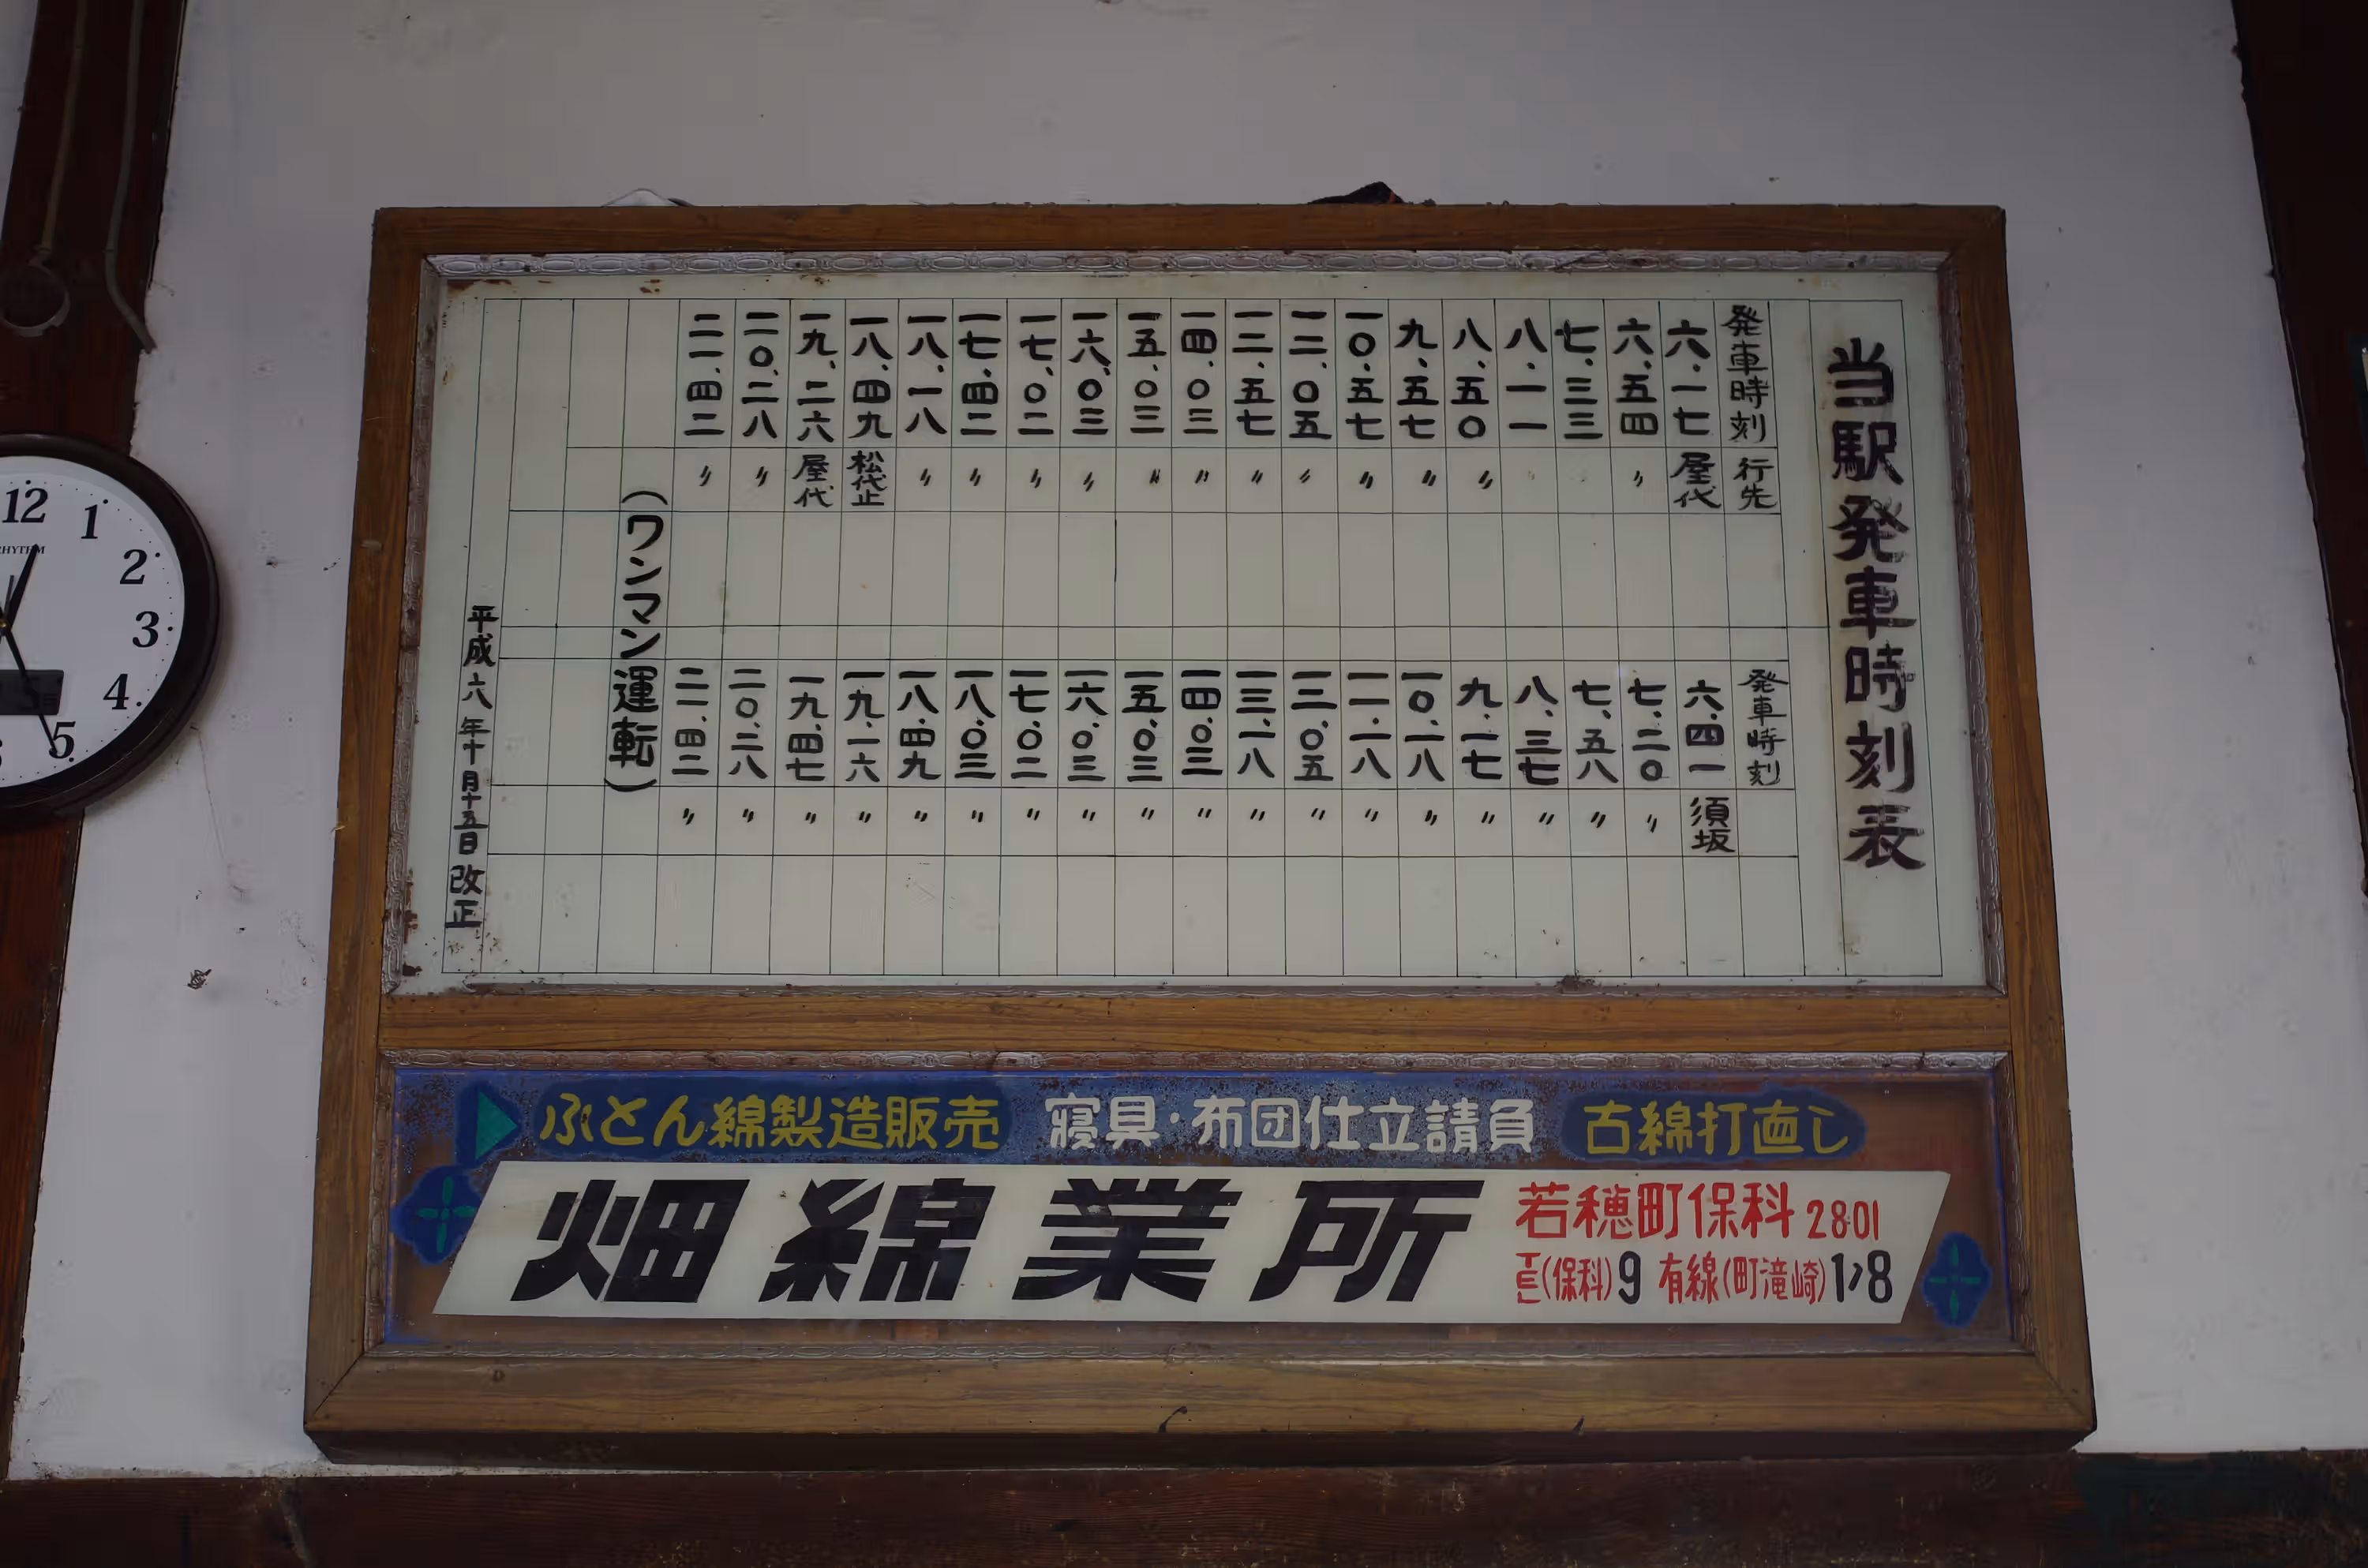 当駅発車時刻表
発車時刻 行先
六.一七 屋代
六.五四 〃
七.三三
八.一一
八.五〇 〃
九.五七 〃
一〇.五七 〃
一二.〇五 〃
一二.五七 〃
一四.〇三 〃
一五.〇三 〃
一六.〇三 〃
一七.〇二 〃
一七.四二 〃
一八.一八 〃
一八.四九 松代止
一九.二六 屋代
二〇.二八 〃
二一.四二 〃
発車時刻
六.四一 須坂
七.二〇 〃
七.五八 〃
八.三七 〃
九.一七 〃
一〇.一八 〃
一一.一八 〃
一二.〇五 〃
一三.一八 〃
一四.〇三 〃
一五.〇三 〃
一六.〇三 〃
一七.〇二 〃
一八.〇三 〃
一八.四九 〃
一九.一六 〃
一九.四七 〃
二〇.二八 〃
二一.四二 〃
(ワンマン運転)
平成六年十月十五日改正
ふとん綿製造販売 寝具・布団仕立請負 古綿打直し
畑綿業所
若穂町保科 2801
TEL(保科)9 有線(町滝崎)1,8
12
1
2
3
4
5